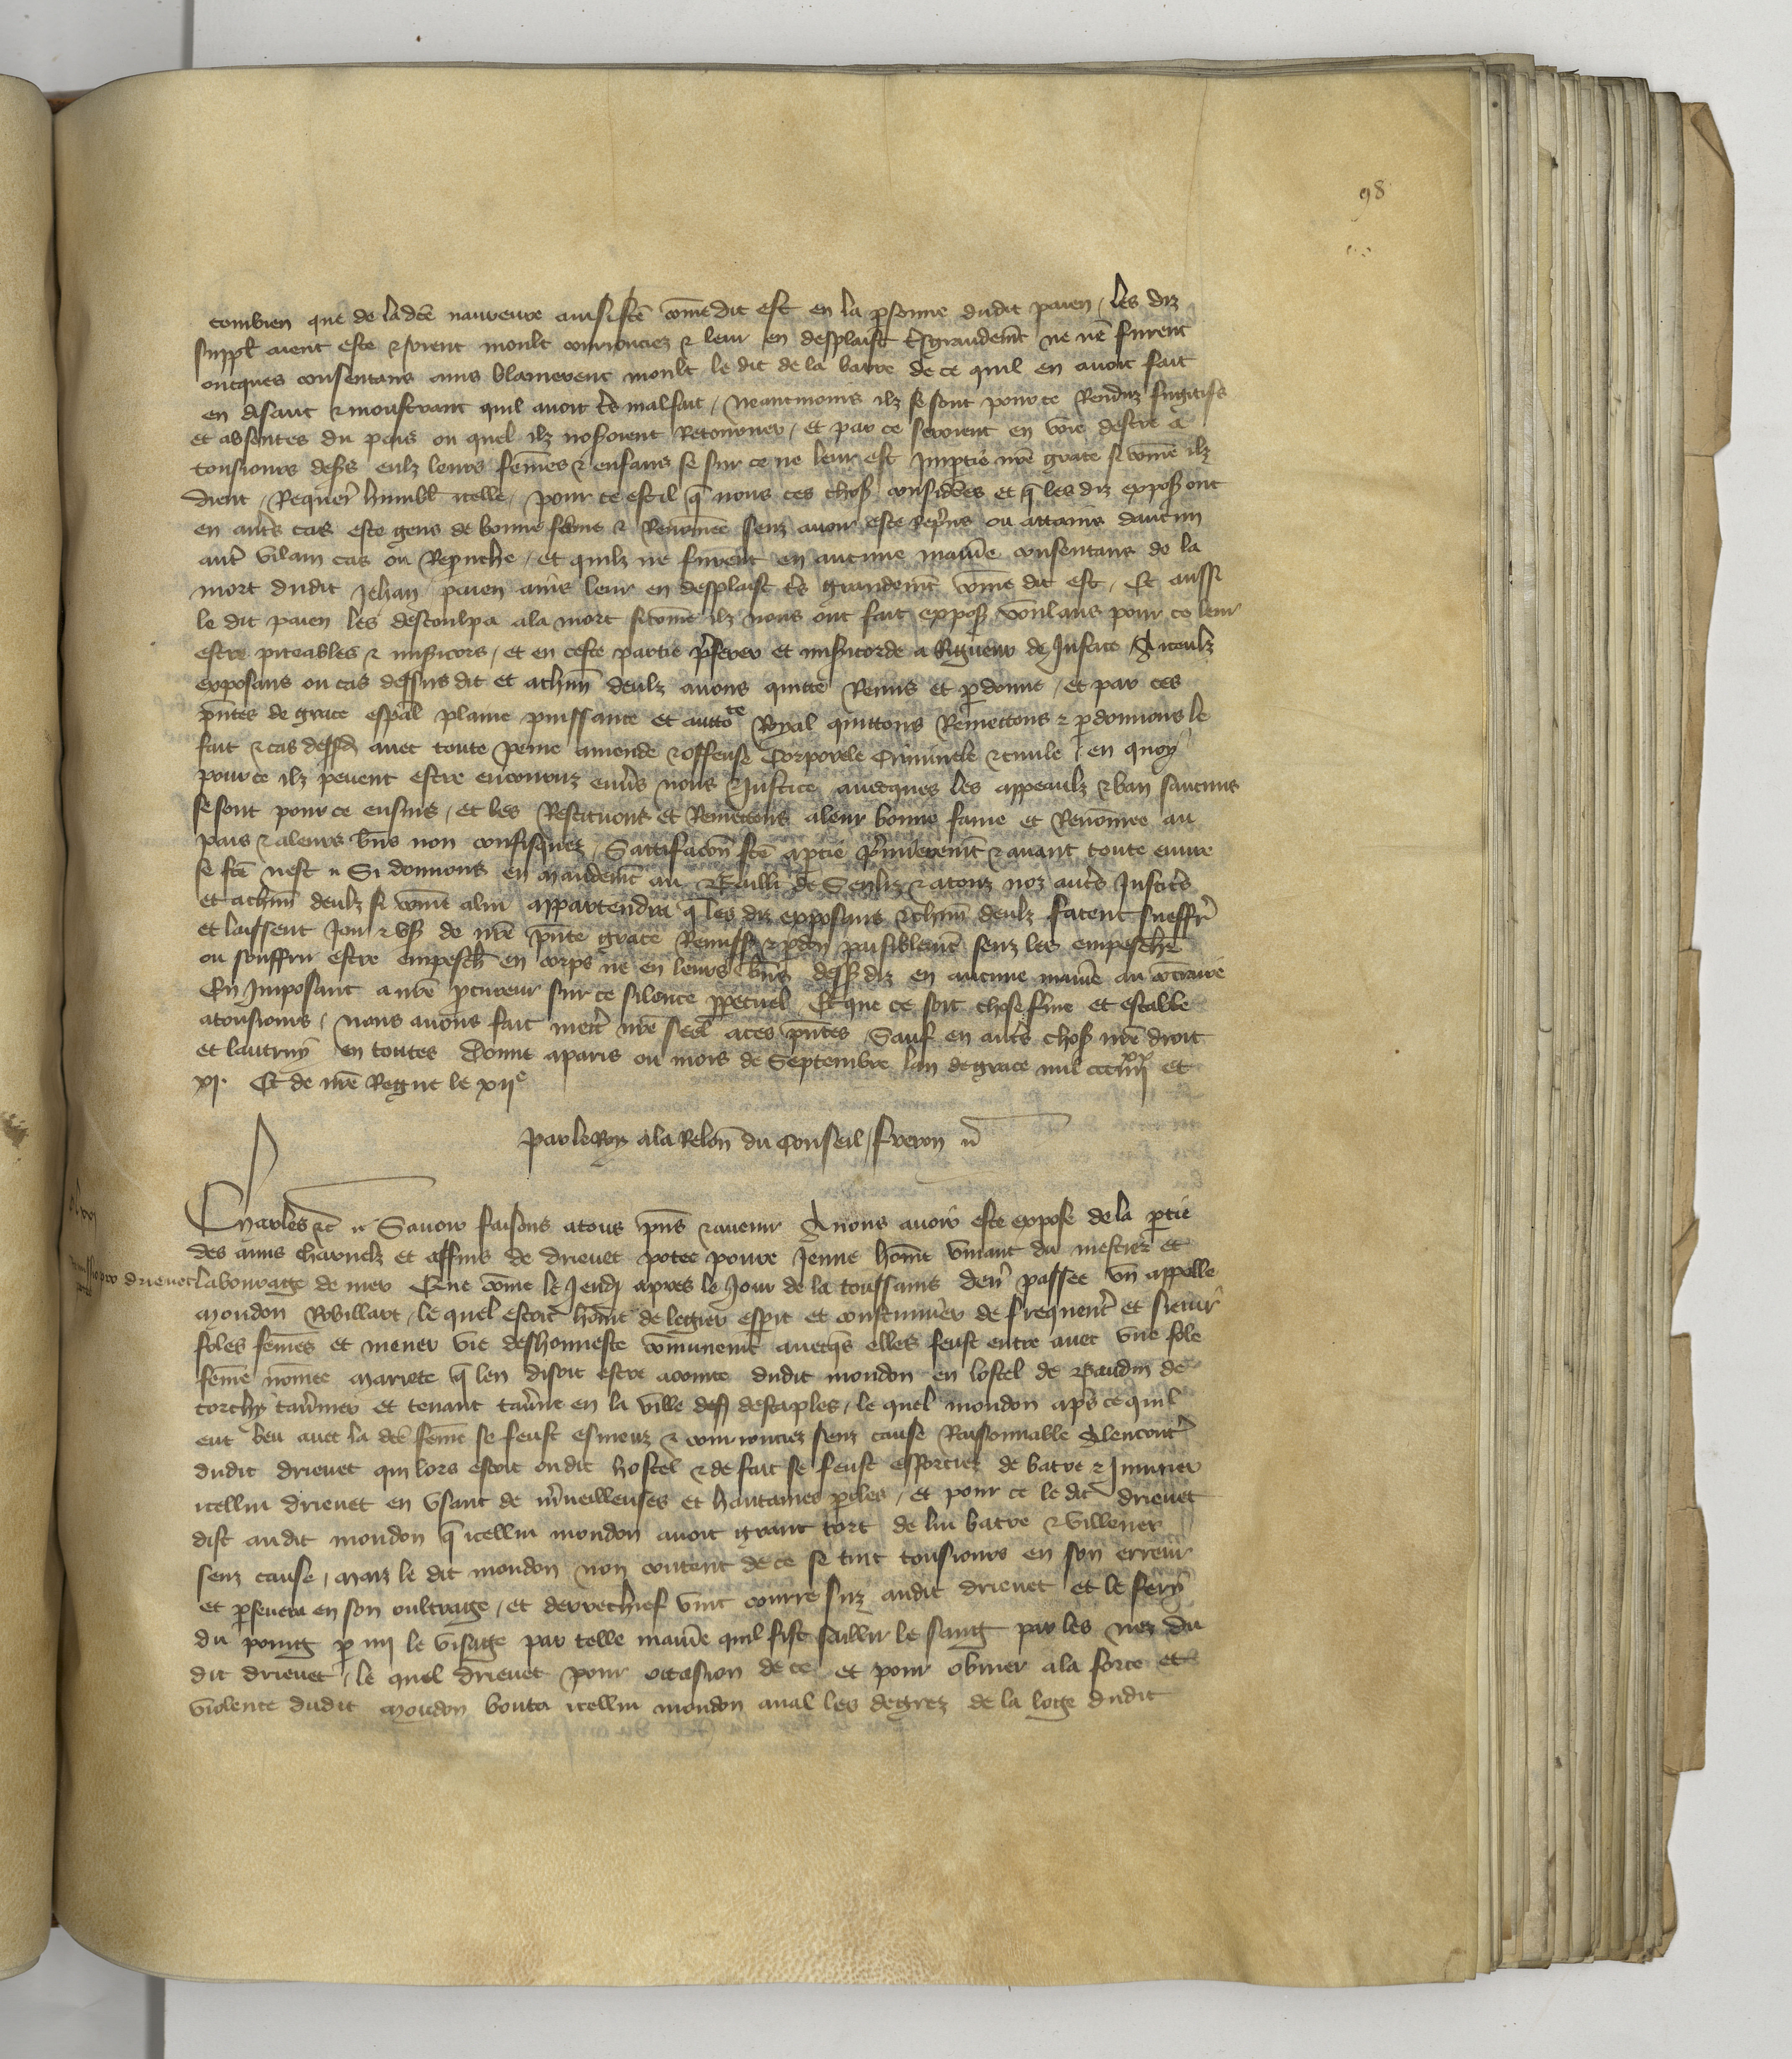 98
combien que de la dce naureure ainsi fce come dit est en la psonne dudit paien / les diz
suppl aient este & soient moult courrouciez & leur en desplaist tsgrandemt ne nē furent
oncques consentans ains blamerent moult le dit de la barre de ce quil en auoit fait
en disant & monstrant quil auoit ts malfait / neantmoins ilz se sont pour ce Renduz fugitifs
et absentes du pais ou quel ilz nosoient Retourner / et par ce seroient en voie destre a
tousiours desers eulx leurs femes & enfans se sur ce ne leur est Imptie nre grace si come ilz
dient / Requer humbl icelle / pour ce est il q nous ces chos considres et q les diz expos ont
en auts cas este gens de bonne fame & Renomee senz auoir este repris ou attains daucun
aut vilain cas ou Reprouche / et quilz ne furent en aucune maniē consentans de la
mort dudit Jehan paien ains leur en desplaist ts grandemt come dit est / Et aussi
le dit paien les descoulpa a la mort si come ilz nous ont fait expos voulans pour ce leur
estre piteables & misicors / et en ceste partie pferer et misicorde a Rigueur de Justice A iceulx
exposans ou cas dessus dit et a chun deulx auons quitte Remis et pdonne / et par ces
pntes de grace espal plaine puissance et auttote Royal quittons Remettons & pdonnons le
fait & cas dessd auec toute peine amende & offense Corporele Criminele & ciuile en quoy
pour ce ilz peuent estre encouruz enuers nous & Justice auecques les appeaulx & ban saucuns
se sont pour ce ensuis / et les Restituons et Remettons a leur bonne fame et Renomee au
pais & a leurs bns non confisquez / Sattifacon fce a ptie pmieremt & auant toute euure
se fce nest Si donnons en mandemt au Bailli de Senliz & a touz noz auts Justics
et a chun deulx si come a lui appartendra q les diz exposans & chun deulx facent sueffr
et laissent Joir & us de nre pnte grace Remiss & pdon paisiblemt senz les empescher
ou souffrir estre empesch en corps ne en leurs bns dess diz en aucune maniē au contraire
En Imposant a nre pcureur sur ce silence ppetuel Et que ce soit chose fme et estable
a tousiours / nous auons fait mett nre seel a ces pntes Sauf en auts chos nre droit
et lautruy en toutes Donne a paris ou mois de Septembre lan de grace mil ccc iiiixx et
xj. Et de nre Regne le xije
Par le Roy a la Relon du Conseil / freron
Charles &c Sauoir faisons a tous pns & auenir A nous auoir este expose de la ptie
des amis charnelz et affins de drieuet potee poure Jeune home viuant du mestier et
drieuet
labourage de mer Que come le Jeudj apres le Jour de la toussains dern passee vn appelle
mondon Robillart / le quel estoit home de legier esprit et coustumier de frequent et sieuir
foles femes et mener vie deshonneste comunemt auecqs elles feust entre auec vne fole
feme nomee mariete q len disoit estre acointe dudit mondon en lostel de Baudin de
torchy tauernier et tenant tauerne en la ville destaples / le quel mondon aps ce quil
eut beu auec la dce feme se feust esmeuz & courrouciez senz cause Raisonnable A lencont
dudit drieuet qui lors estoit ou dit hostel & de fait se feust efforciez de batre & Iniurier
icellui drieuet en vsant de mueilleuses et hautaines proles / et pour ce le dit drieuet
dist audit mondon q icellui mondon auoit grant tort de lui batre & villener
senz cause / maiz le dit mondon non content de ce se tint tousiours en son erreur
et pseuera en son oultrage / et derrechief vint courre suz audit drieuet et le fery
du poing p mj le visage par telle maniē quil fist saillir le sang par les nez du
dit drieuet / le quel drieuet pour occasion de ce et pour obuier a la force et
violence dudit mondon bouta icellui mondon aual les degrez de la loge dudit